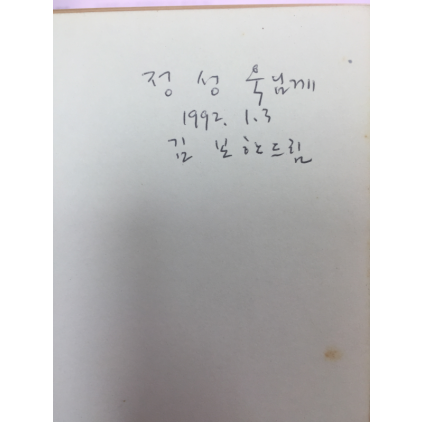 정 성 욱님께
1992. 1. 3
김 보한드림